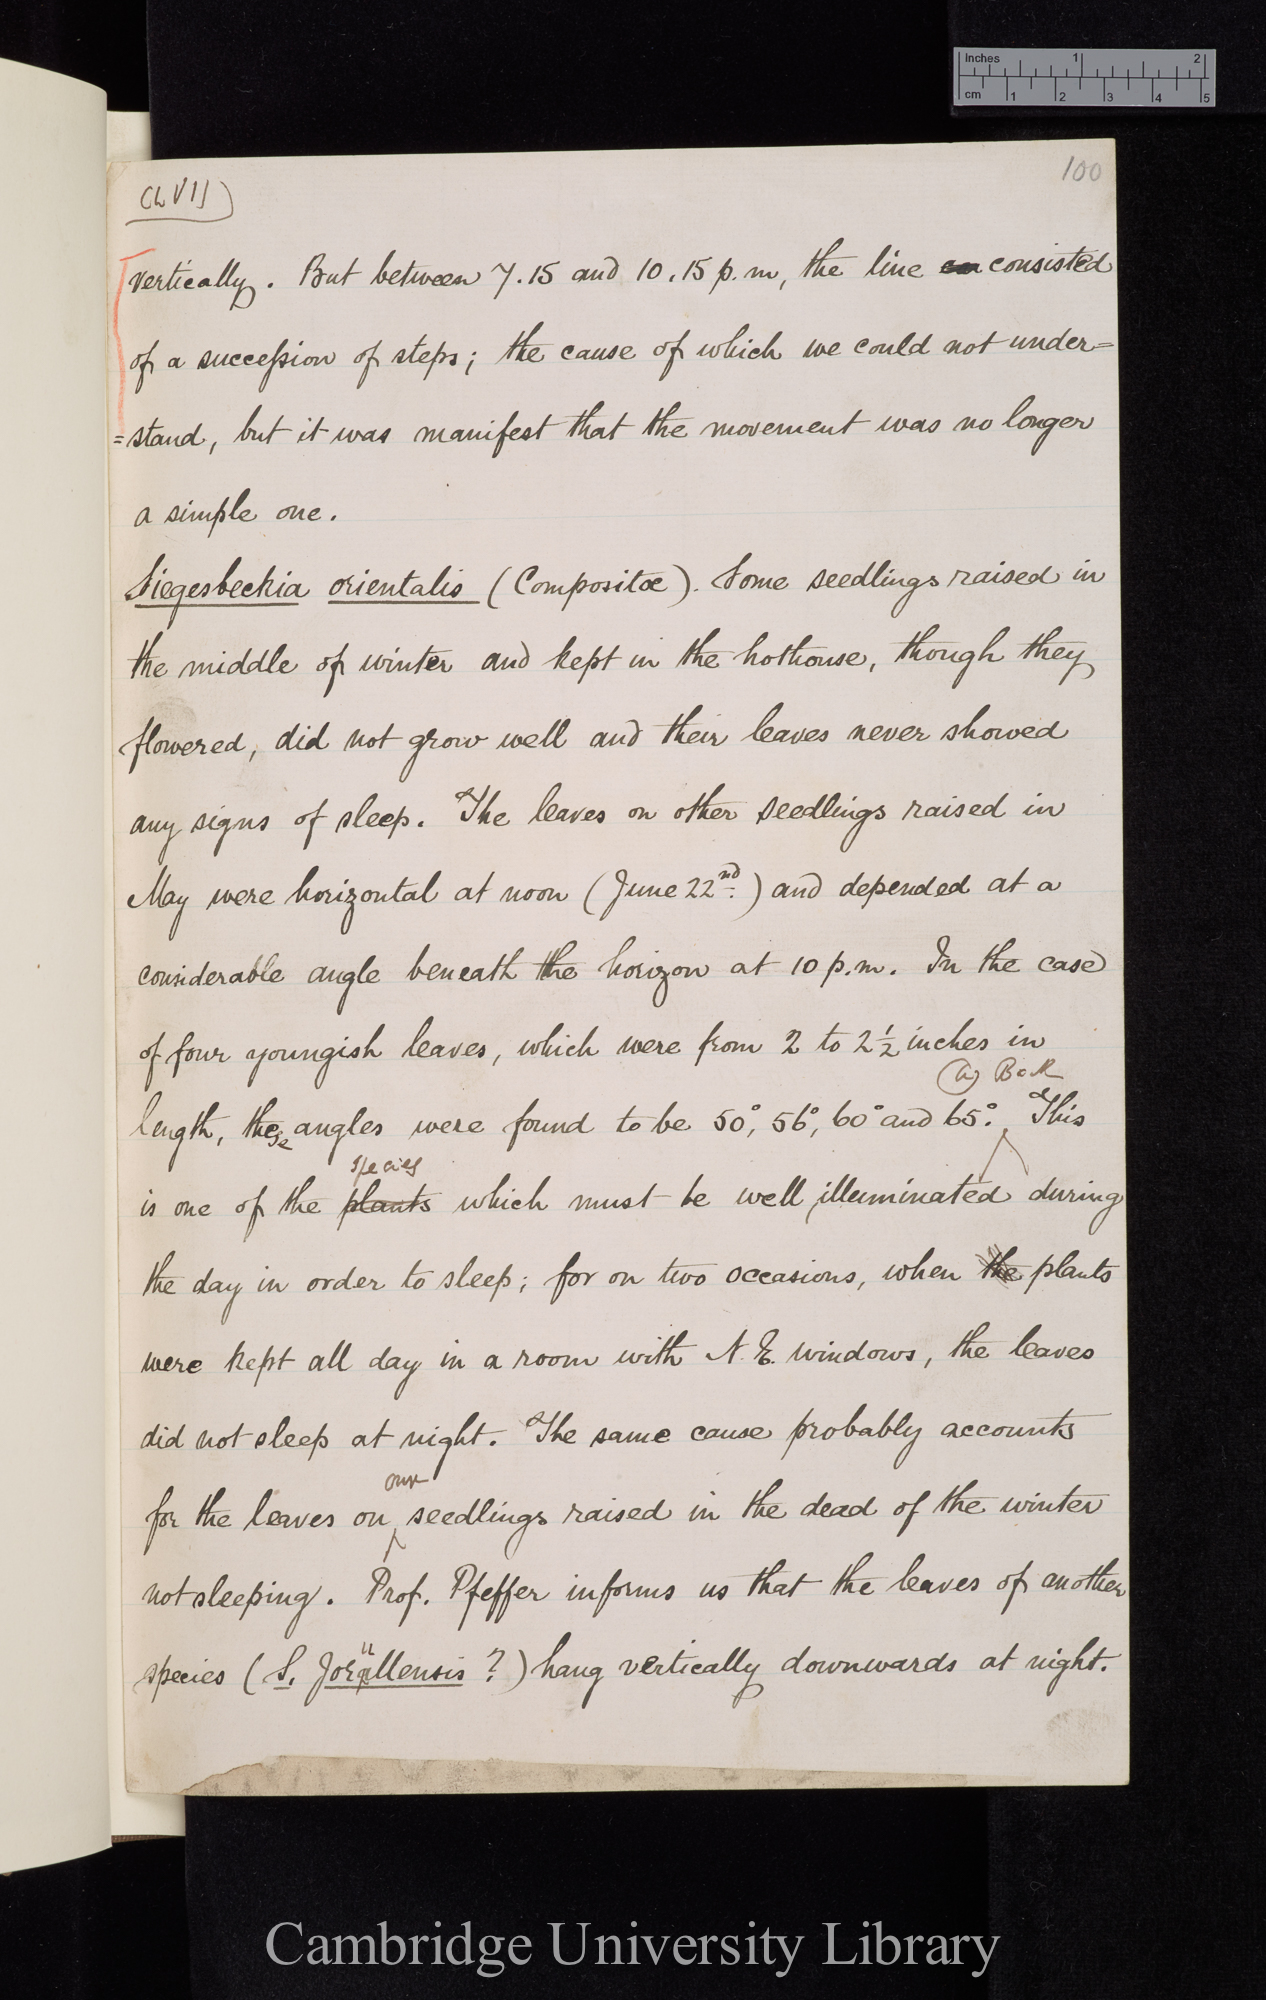 Inches 1 2
cm 1 2 3 4 5
100
vertically. But between 7.15 and 10.15 p.m, the line consisted
of a succession of steps; the cause of which we could not under=
=stand, but it was manifest that the movement was no longer
a simple one.
Siegesbeckia orientalis (Compositœ). Some seedlings raised in
the middle of winter and kept in the hothouse, though they
flowered, did not grow well and their leaves never showed
any signs of sleep. The leaves on other seedlings raised in
May were horizontal at noon (June 22nd.) and depended at a
considerable angle beneath the horizon at 10 p.m. In the case
of four youngish leaves, which were from 2 to 2½ inches in
(a) Back
length, these angles were found to be 50°, 56°, 60° and 65°. This
species
is one of the plants which must be well illuminated during
the day in order to sleep; for on two occasions, when the plants
were kept all day in a room with N.E. windows, the leaves
did not sleep at night. The same cause probably accounts
our
for the leaves on seedlings raised in the dead of the winter
not sleeping. Prof. Pfeffer informs us that the leaves of another
species (S. Jorullensis ?) hang vertically downwards at night.
Cambridge University Library